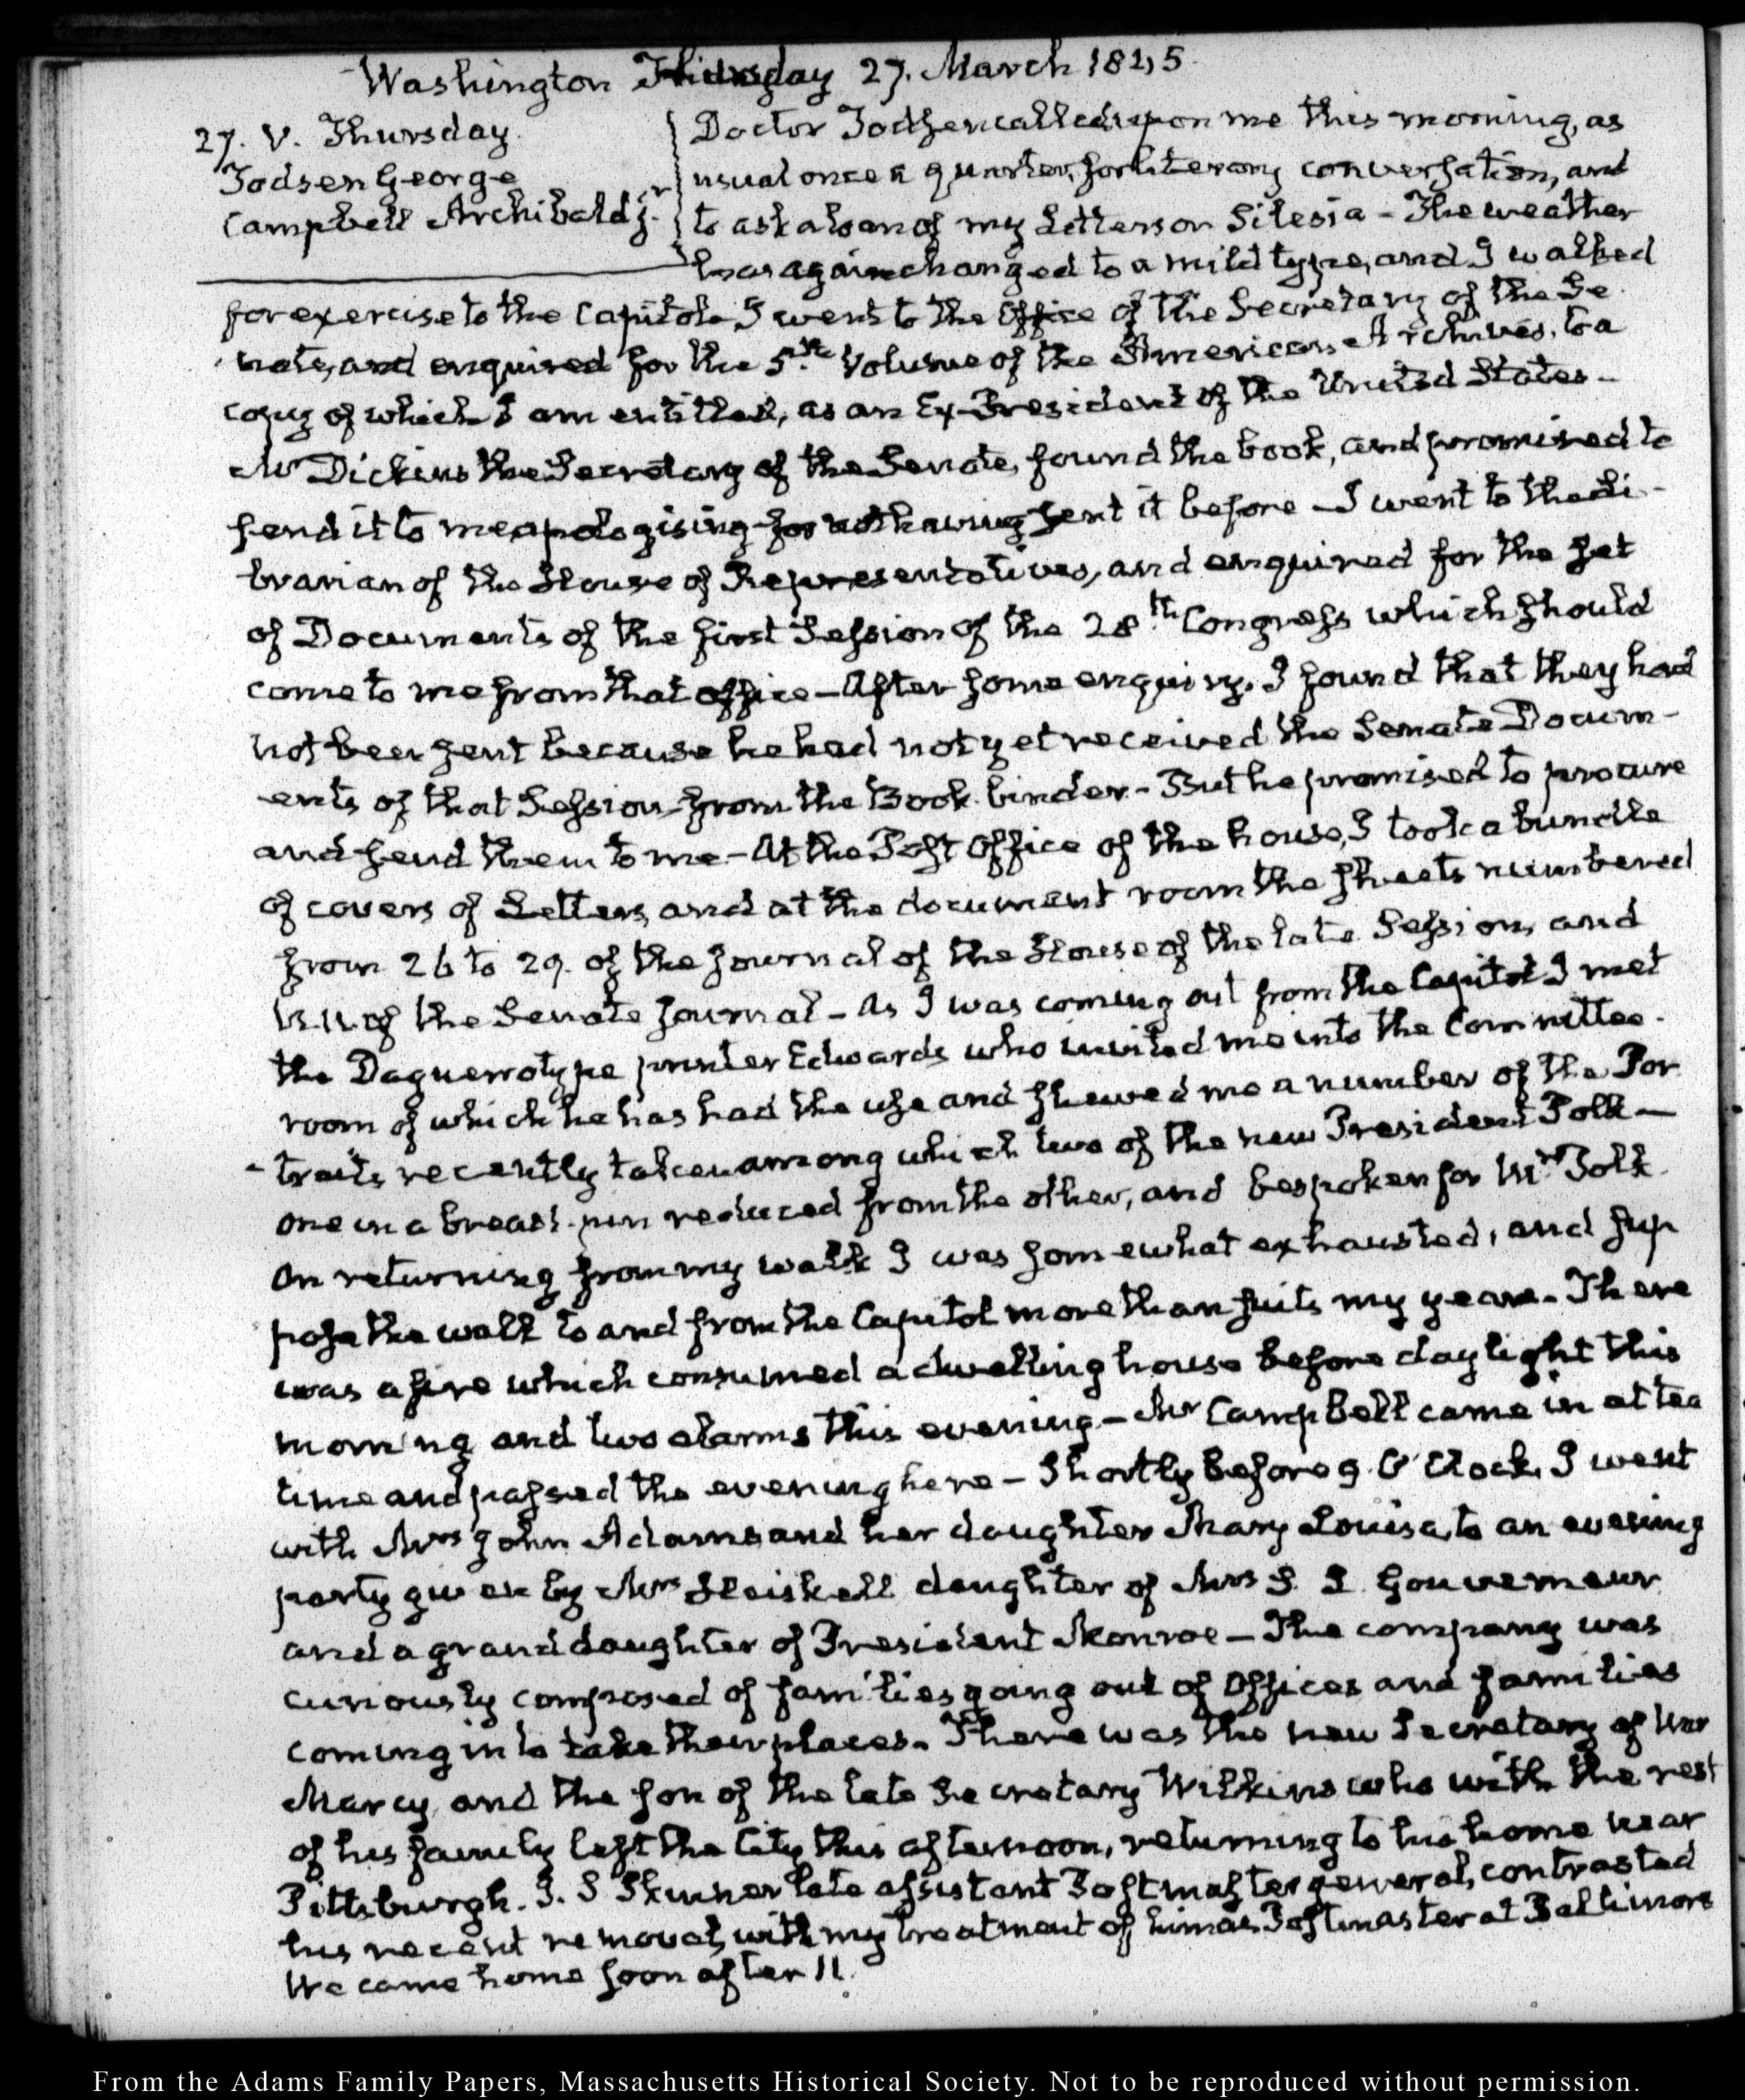 Washington Thursday 27. March 1845.
27. V. Thursday.
Todsen George
Campbell Archibald jr.
Doctor Todsen called upon me this morning, as
usual once a quarter, for literary conversation, and
to ask a loan of my Letters on Silesia – The weather
has again changed to a mild type, and I walked
for exercise to the Capitol. I went to the Office of the Secretary of the Se
nate, and enquired for the 5th. Volume of the American Archives, to a
copy of which I am entitled, as an Ex-President of the United States –
Mr Dickins the Secretary of the Senate, found the book, and promised to
send it to me apologising for not having sent it before – I went to the Li-
brarian of the House of Representatives, and enquired for the set
of Documents of the first Session of the 28th. Congress which should
come to me from that office – After some enquiry, I found that they had
not been sent because he had not yet received the Senate Docum-
ents of that Session from the Book binder – But he promised to procure
and send them to me – At the Post Office of the house, I took a bundle
of covers of Letters, and at the document room the sheets numbered
from 26 to 29. of the Journal of the House of the late Session, and
of the Senate Journal – As I was coming out from the Capitol I met
the Daguerrotype printer Edwards who invited me into the Committee
room of which he has had the use and shewed me a number of the Por
traits recently taken among which two of the new President Polk –
one in a breast-pin reduced from the other, and bespoken for Mrs Polk
On returning from my walk I was somewhat exhausted, and sup
pose the walk to and from the Capitol more than suits my years – There
was a fire which consumed a dwelling house before daylight this
morning and two alarms this evening – Mr Campbell came in at tea
time and passed the evening here – Shortly before 9. O'Clock, I went
with Mrs John Adams and her daughter Mary Louisa, to an evening
party given by Mrs Heiskell daughter of Mrs S. L. Gouverneur
and a granddaughter of President Monroe – The company was
curiously composed of families going out of Offices and families
coming in to take their places. There was the new Secretary of War
Marcy, and the son of the late Secretary Wilkins who with the rest
of his family left the City this afternoon, returning to his home near
Pittsburgh. J. S Skinner late assistant Postmaster general, contrasted
his recent removal, with my treatment of him as Postmaster at Baltimore
We came home soon after 11.
From the Adams Family Papers, Massachusetts Historical Society. Not to be reproduced without permission.